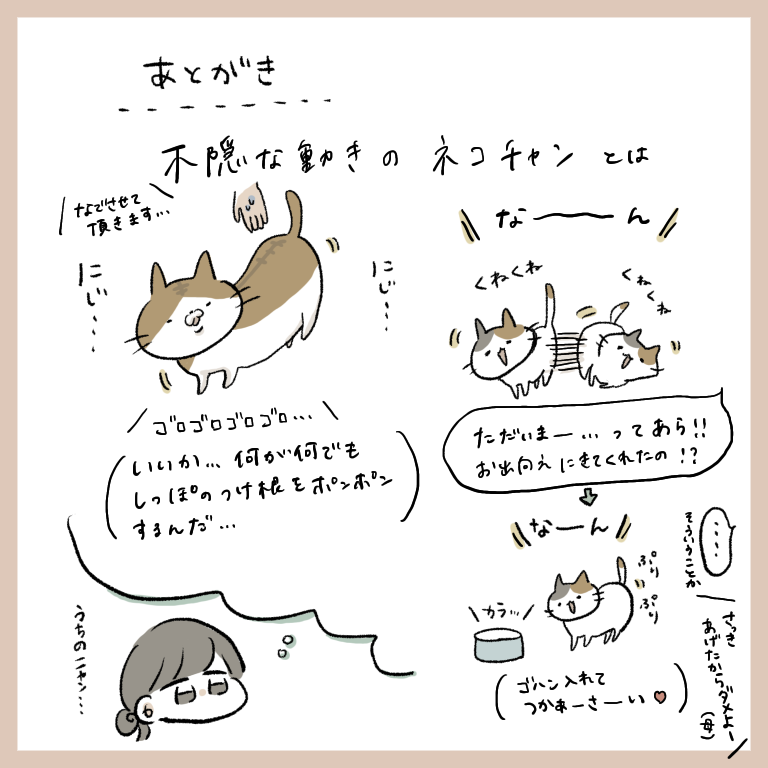 あとがき
不隠な動きのネコチャンとは
なでさせて
頂きます…
にじ…
にじ…
ゴロゴロゴロゴロ…
いいか…何が何でも
しっぽのつけ根をポンポン
するんだ…
うちのニャン…
な――ん
くねくね
くねくね
ただいまー…ってあら!!
お出向えにきてくれたの!?
なーん
ぷり
ぷり
カラッ…
ゴハン入れて
つかぁーさーい♥
…
そういうことか
さっき
あげたからダメよー
(母)